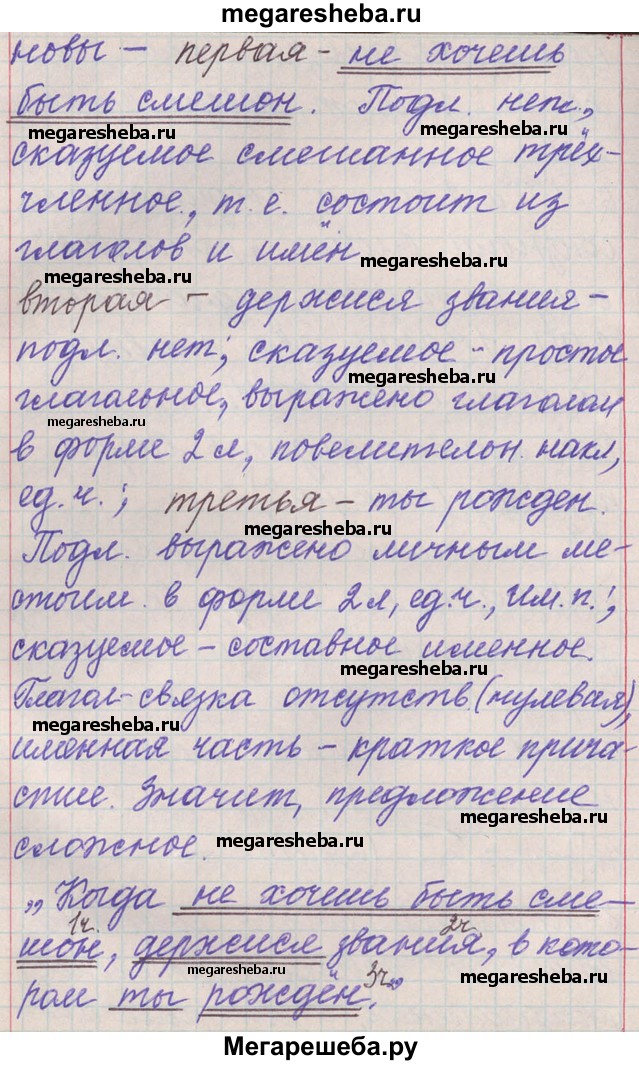 megaresheba.ru
новы – первая – не хочешь
быть смешон. Подл. нет.,
megaresheba.ru megaresheba.ru
сказуемое смешанное трёх-
членное, т. е. состоит из
глаголов и имён
megaresheba.ru
megaresheba.ru
вторая – держися звания –
подл. нет; сказуемое – простое
megaresheba.ru
глагольное, выражено глаголом
megaresheba.ru
в форме 2 л, повелителон. накл,
ед. ч.; третья – ты рожден.
megaresheba.ru
Подл. выражено личным ме-
стоим. в форме 2 л, ед. ч., Им. п.;
сказуемое – составное именное.
megaresheba.ru
Глагол-связка отсутств. (нулевая),
megaresheba.ru
именная часть – краткое прича-
стие. Значит, предложение
сложное.
megaresheba.ru
„Когда не хочешь быть сме-
1ч. 2ч.
шон, держися звания, в кото-
megaresheba.ru megaresheba.ru
3ч.
ром ты рождён.“
Мегарешеба.ру